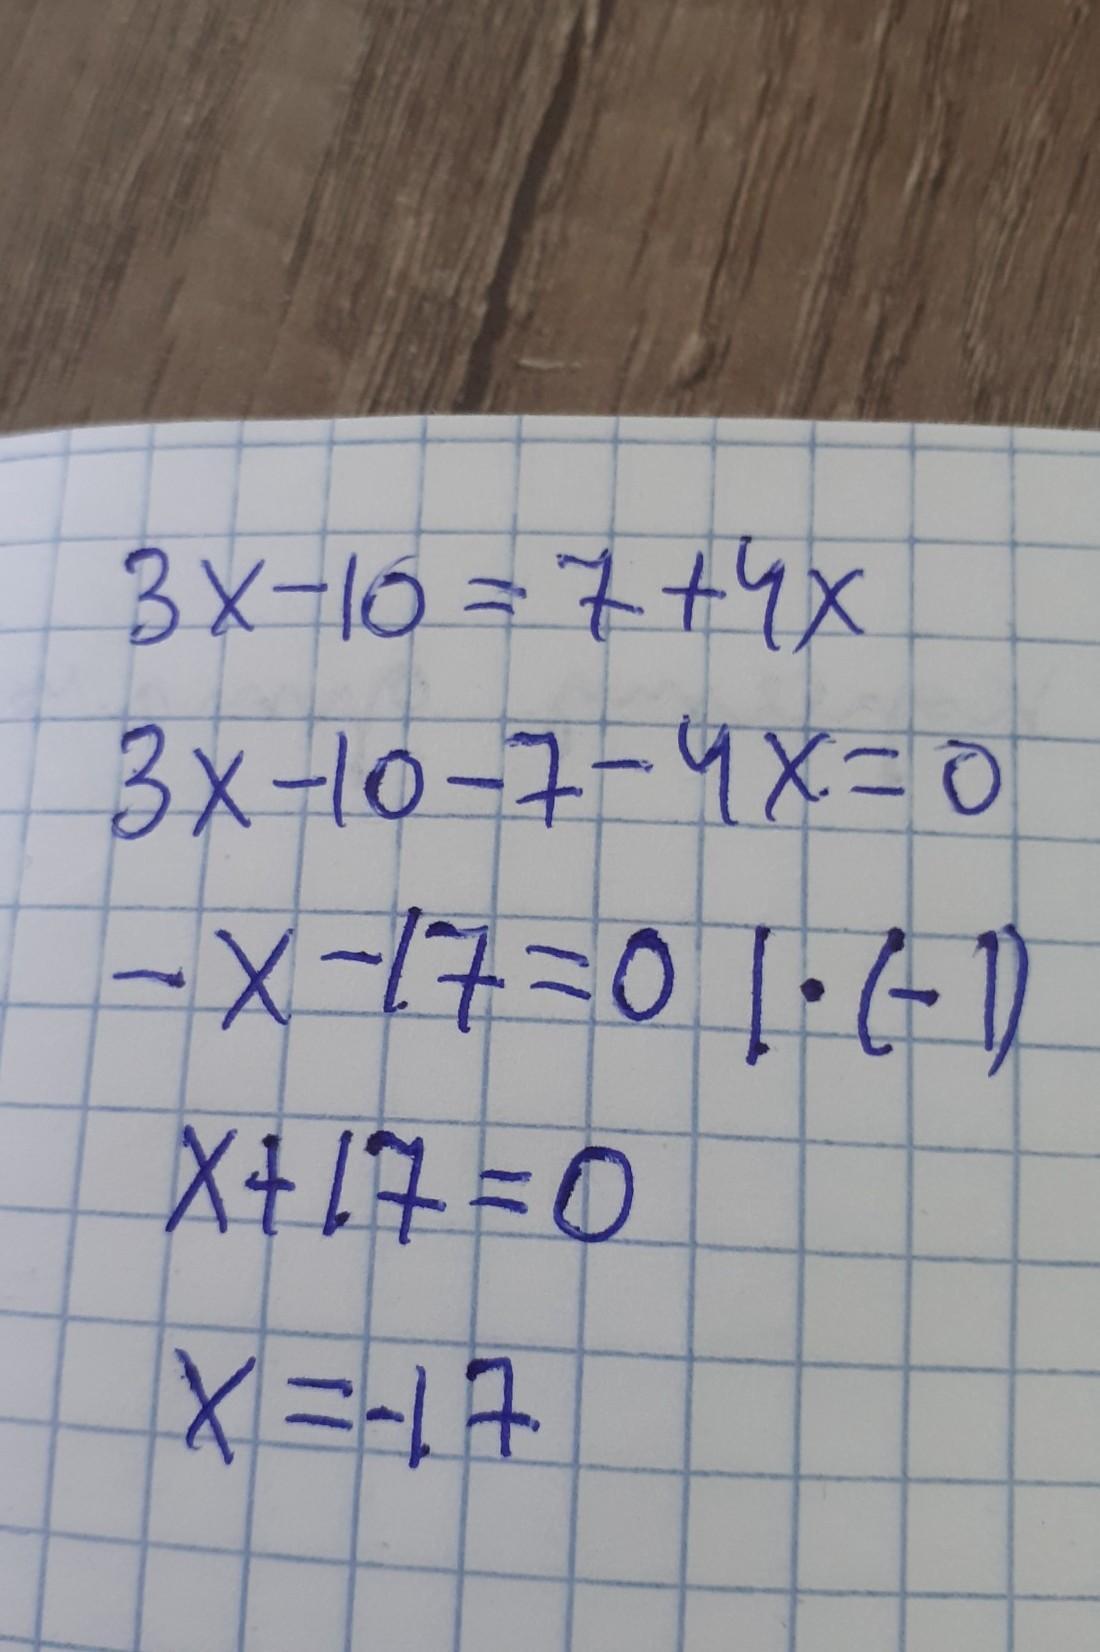 3x-10=7+4x
3x-10-7-4x=0
-x-17=0 |·(-1)
x+17=0
x=-17